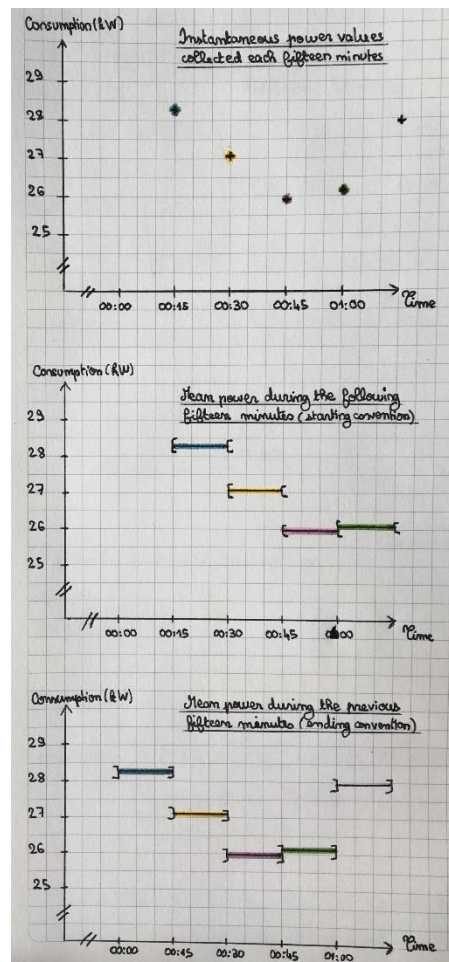 Consumption (kW)
Instantaneous power values
collected each fifteen minutes
29
28
27
26
25
00:00 00:15 00:30 00:45 01:00 Time
Consumption (kW)
Mean power during the following
fifteen minutes (starting convention)
29
28
27
26
25
00:00 00:15 00:30 00:45 01:00 Time
Consumption (kW)
Mean power during the previous
fifteen minutes (ending convention)
29
28
27
26
25
00:00 00:15 00:30 00:45 01:00 Time